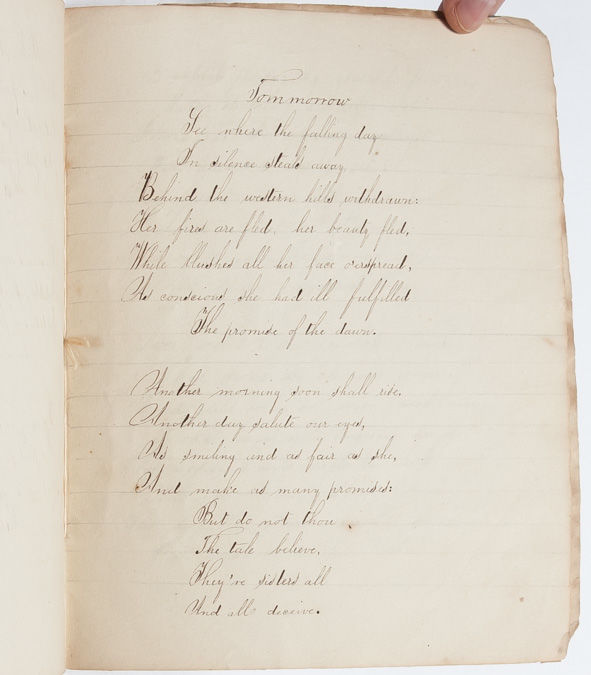 Tommorrow
See where the falling day
In silence steals away,
Behind the western hills withdrawn:
Her fires are fled, her beauty fled,
While blushes all her face o'erspread,
As conscious she had ill fulfilled
The promise of the dawn.
Another morning soon shall rise.
Another day salute our eyes,
As smiling and as fair as she,
And make as many promises:
But do not thou
The tale believe,
They're sisters all
And all deceive.